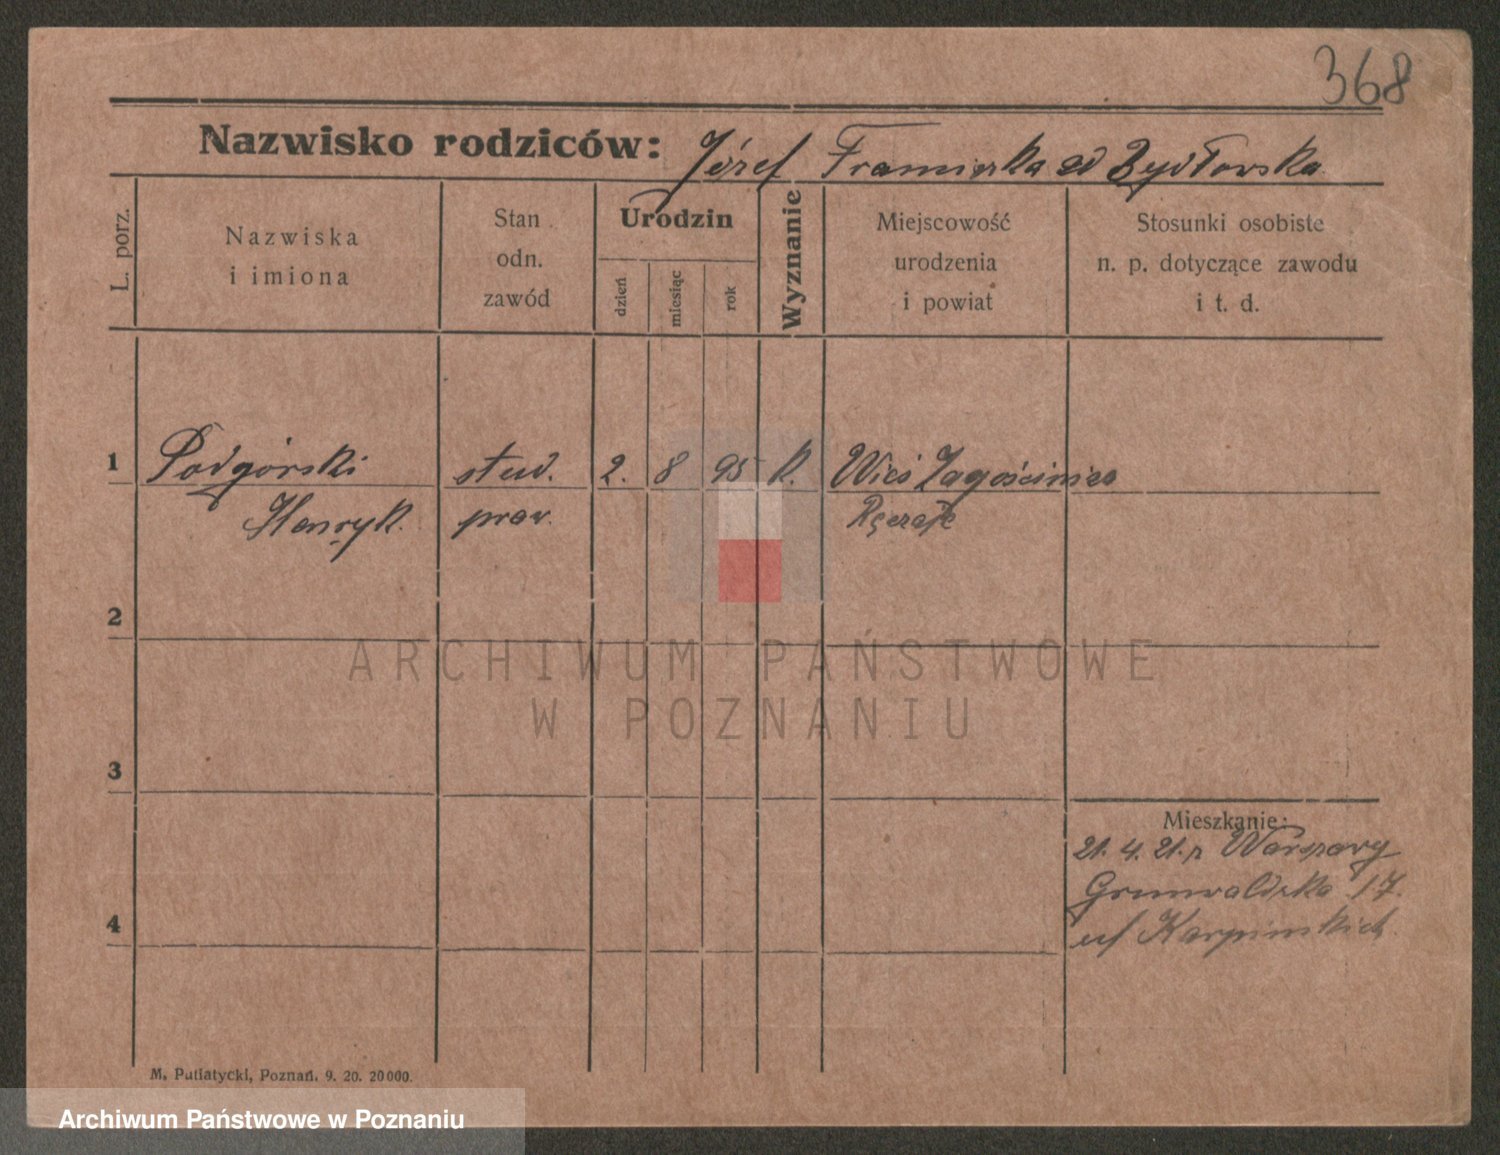 368
Nazwisko rodziców: Józef Franciszka
L. porz.
Nazwiska
i imiona
Stan
odn.
zawód
Urodzin
dzień
miesiąc
rok
Wyznanie
Miejscowość
urodzenia
i powiat
Stosunki osobiste
n. p. dotyczące zawodu
i t. d.
1 Podgórski stud. 2. 8 95 k. Wieś
Henryk. praw.
2
ARCHIWUM PAŃSTWOWE
W POZNANIU
3
Mieszkanie:
21. 4. 21. z Warszawy
4 Grunwaldzka 17.
M. Putiatycki, Poznań. 9. 20. 20000.
Archiwum Państwowe w Poznaniu